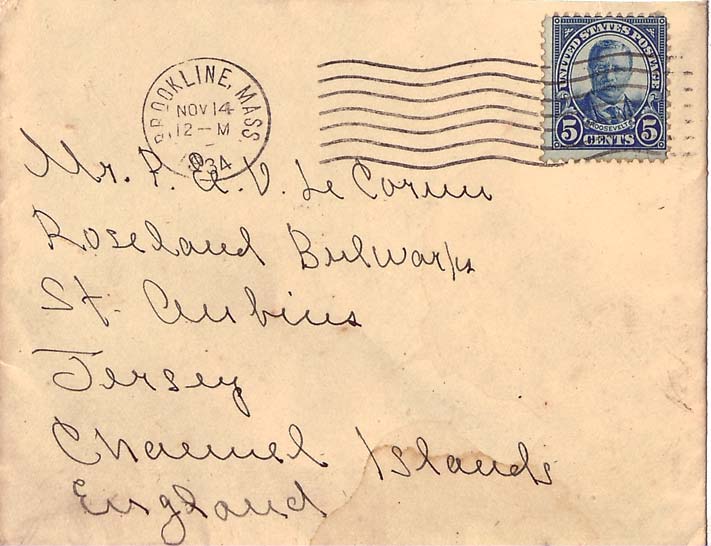 BROOKLINE, MASS.
NOV 14
12-M
1934
UNITED STATES POSTAGE
ROOSEVELT
5 CENTS 5
Mr. P. A. V. Le Cornu
Roseland Bulwarks
St. Aubins
Jersey
Channel Islands
England